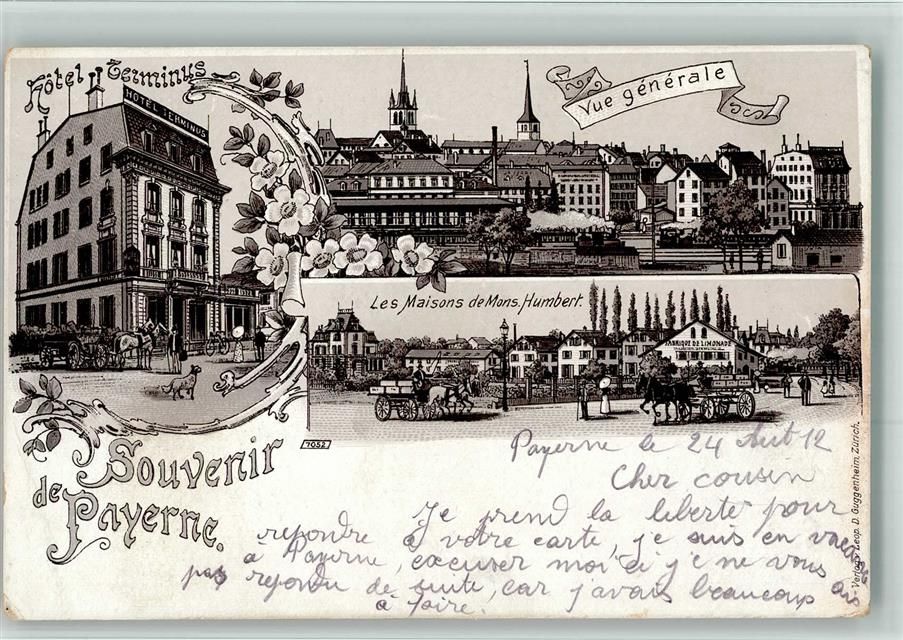 Hôtel Terminus
HOTEL TERMINUS
Vue générale
Les Maisons de Mons. Humbert.
FABRIQUE DE LIMONADE
7052
Souvenir
de Payerne.
Payerne le 24 Aut 12
Cher cousin
Je prend la liberté pour
repondre à votre carte, je suis en vacan
à Payerne, excuser moi si j'e ne vous
pas repondu de suite, car j'avais beaucoup
à faire.
Verlag v. Leop. D. Guggenheim, Zürich.